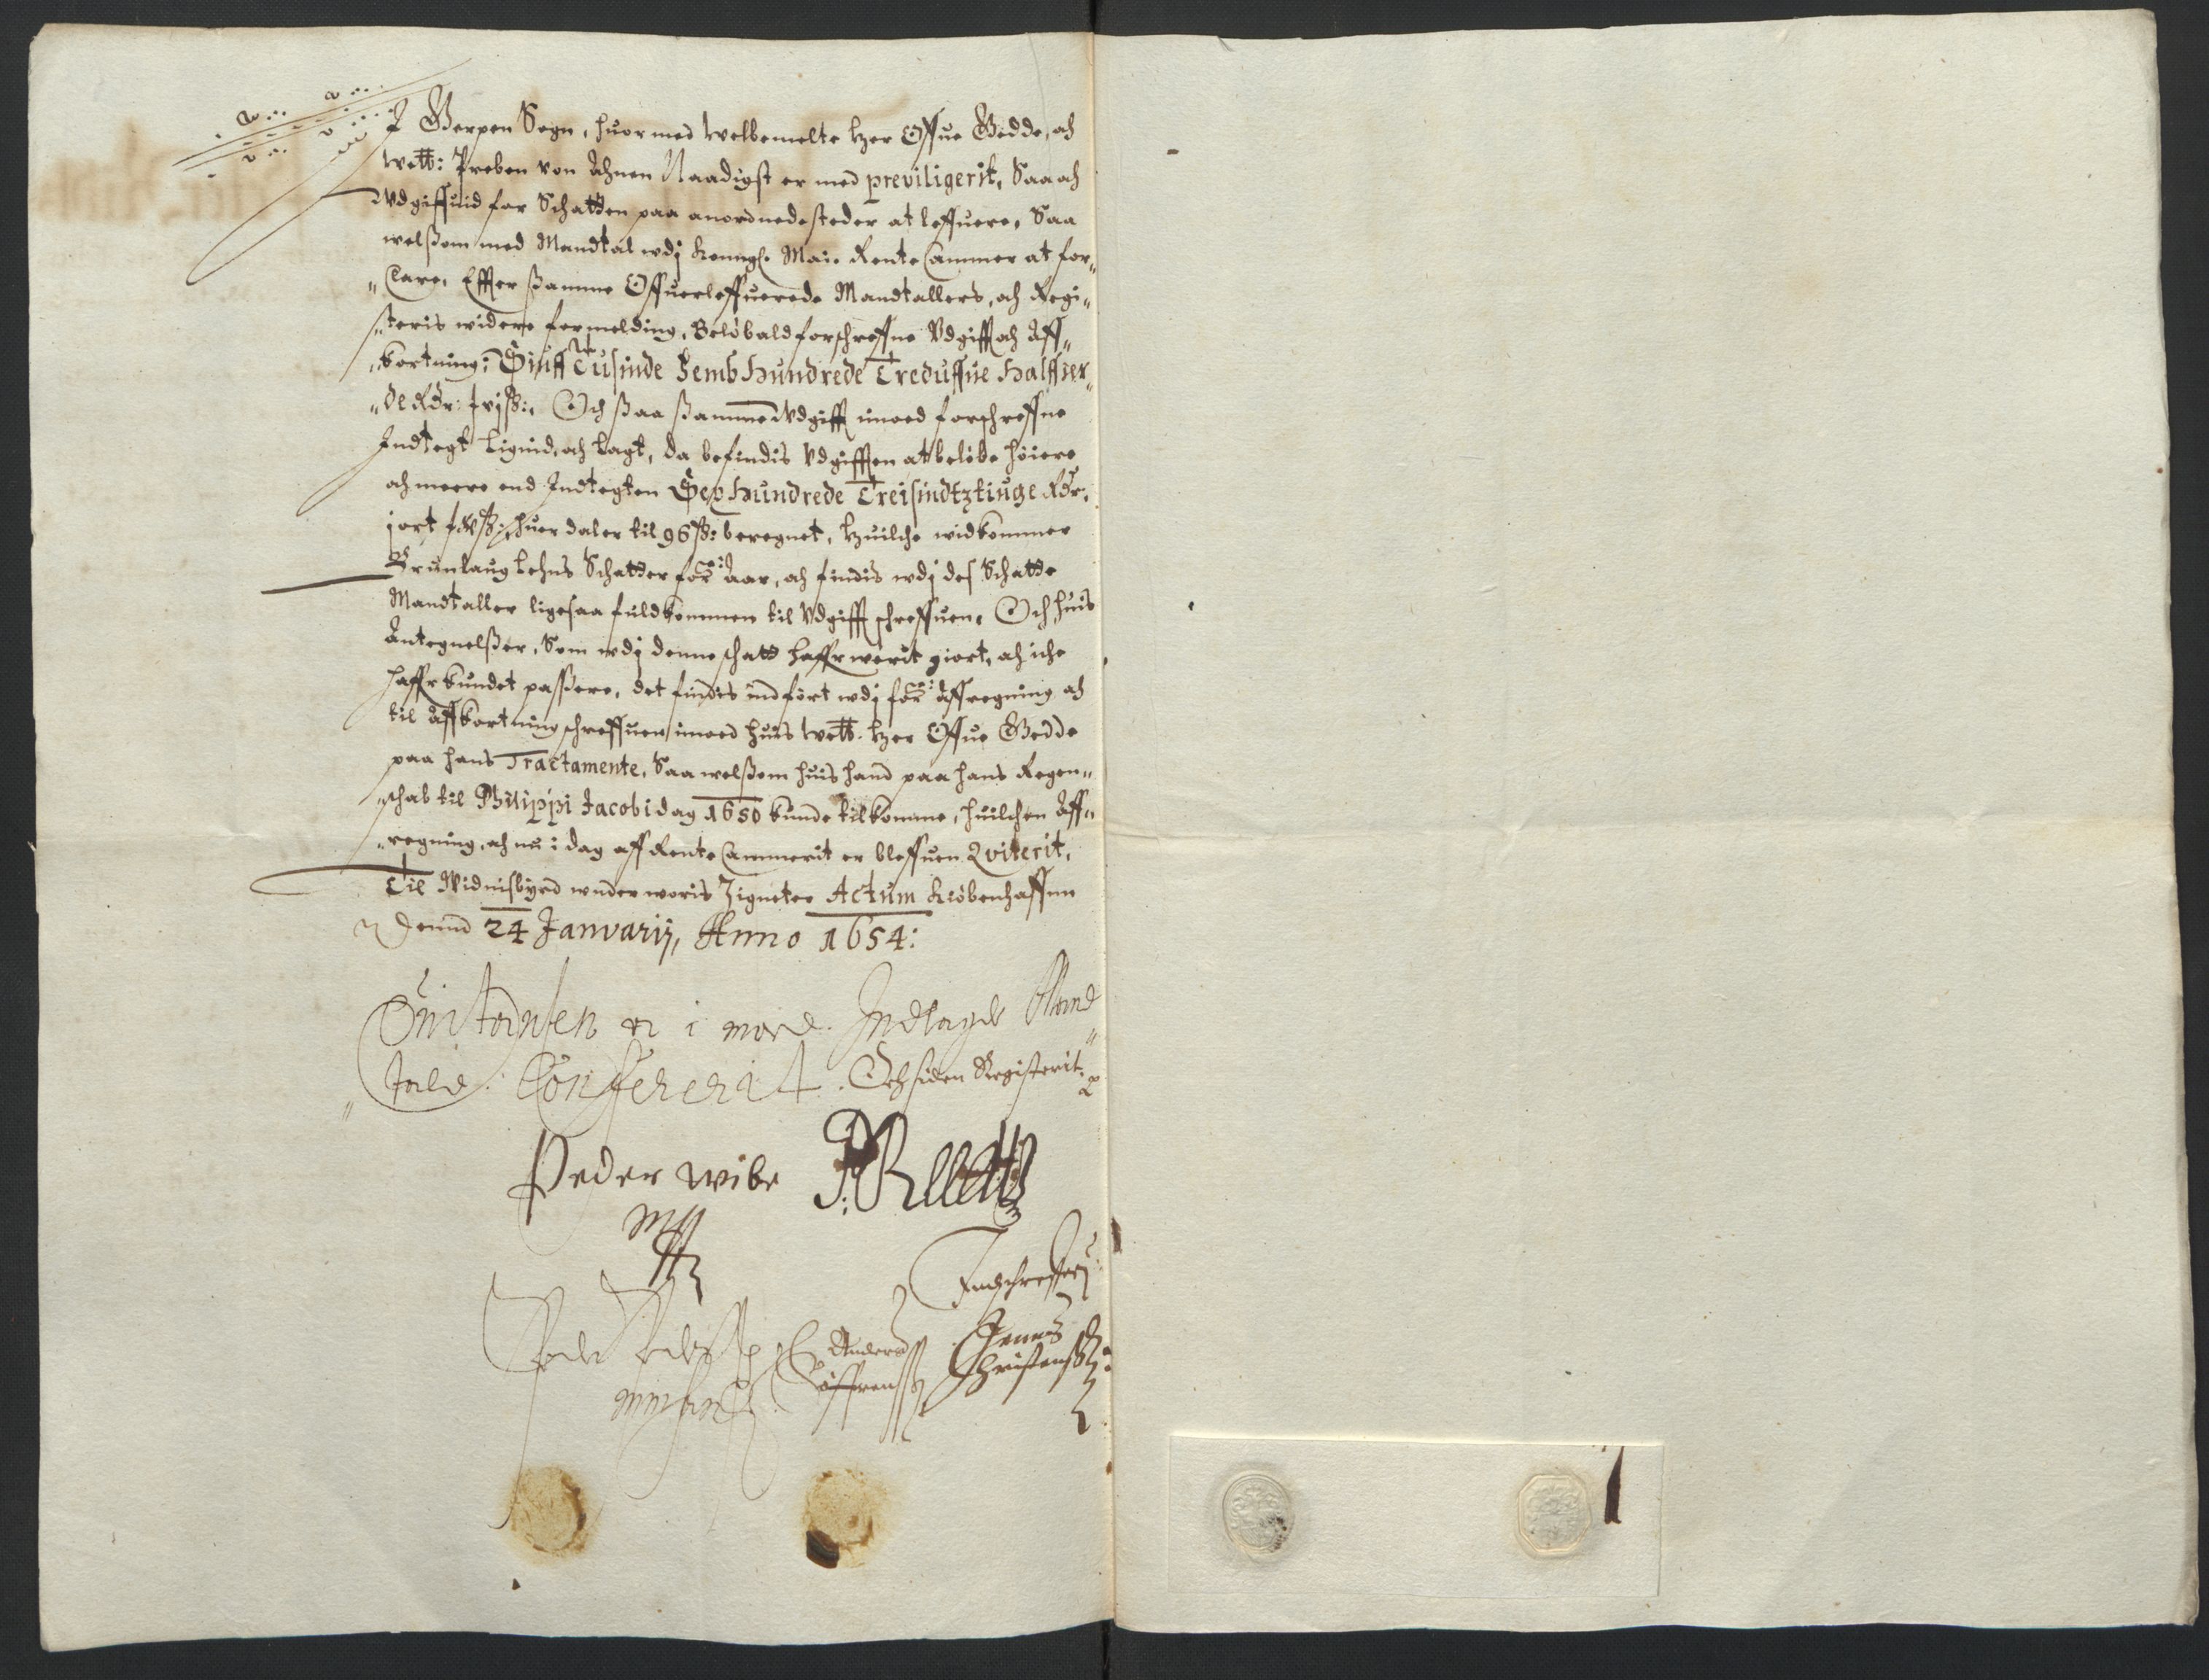 I Gierpen Sogn, huormed welbemelte her Offue Giedde, och
welb: Preben von Ahnen Naadigst er med previligerit, Saa och
Vdgiffuid for Schatten paa anordnede steder at leffuere, Saa
welsom med Mandtal wdj Konngl. Mai. Rente Cammer at for„
„Clare, Effter samme Offuerleffuerede Mandtallers, och Regi„
„steris widere formelding, Beløb ald forschreffne Vdgifft och Aff„
„kortning: Siuff Tusinde Femb Hundrede Treduffue Halffier„
„de Rdr: ß:, Och saa samme Vdgifft imoed forschreffne
Indtegt Ligned, och Lagt, da befindis Vdgifften at beløbe høiere
och meere end Indtegten Sex Hundrede Treisindtztiuge Rdr:
j ort ß:, huer daler til 96 ß: beregnet, huilche widkommer
Brunlaug Lehns Schatter for: Aar, och findis wdj des Schatte
Mandtaller ligesaa fuldkommen til Vdgifft schreffuen, Och huis
Antegnelsser, Som wdj denne schatt haffr werit giort, och iche
haffr kundet passere, det findis indført wdj for: affregning och
til Affkortning schreffuen imoed huis welb. her Offue Giedde
paa hans Tractamente, Saa welsom huis hand paa hans Regen„
„schab til Philippi Jacobi dag 1650 kunde tilkomme, huilchen Aff„
„regning, och nu i dag aff Rente Cammerit er bleffuen Qviterit,
Til Widnisbyrd wnder woris Zigneter Actum Kiøbenhaffnn
Dennd 24 Januarij, Anno 1654:
Quitansen er i moed Indlagde Mand„
„tale Confererit. Och siden Registerit
Peder Wibe P: Reetz
mpp
Indschreffuen
Peder Pedersen Anders Jenns
Søffrenß Christenß: